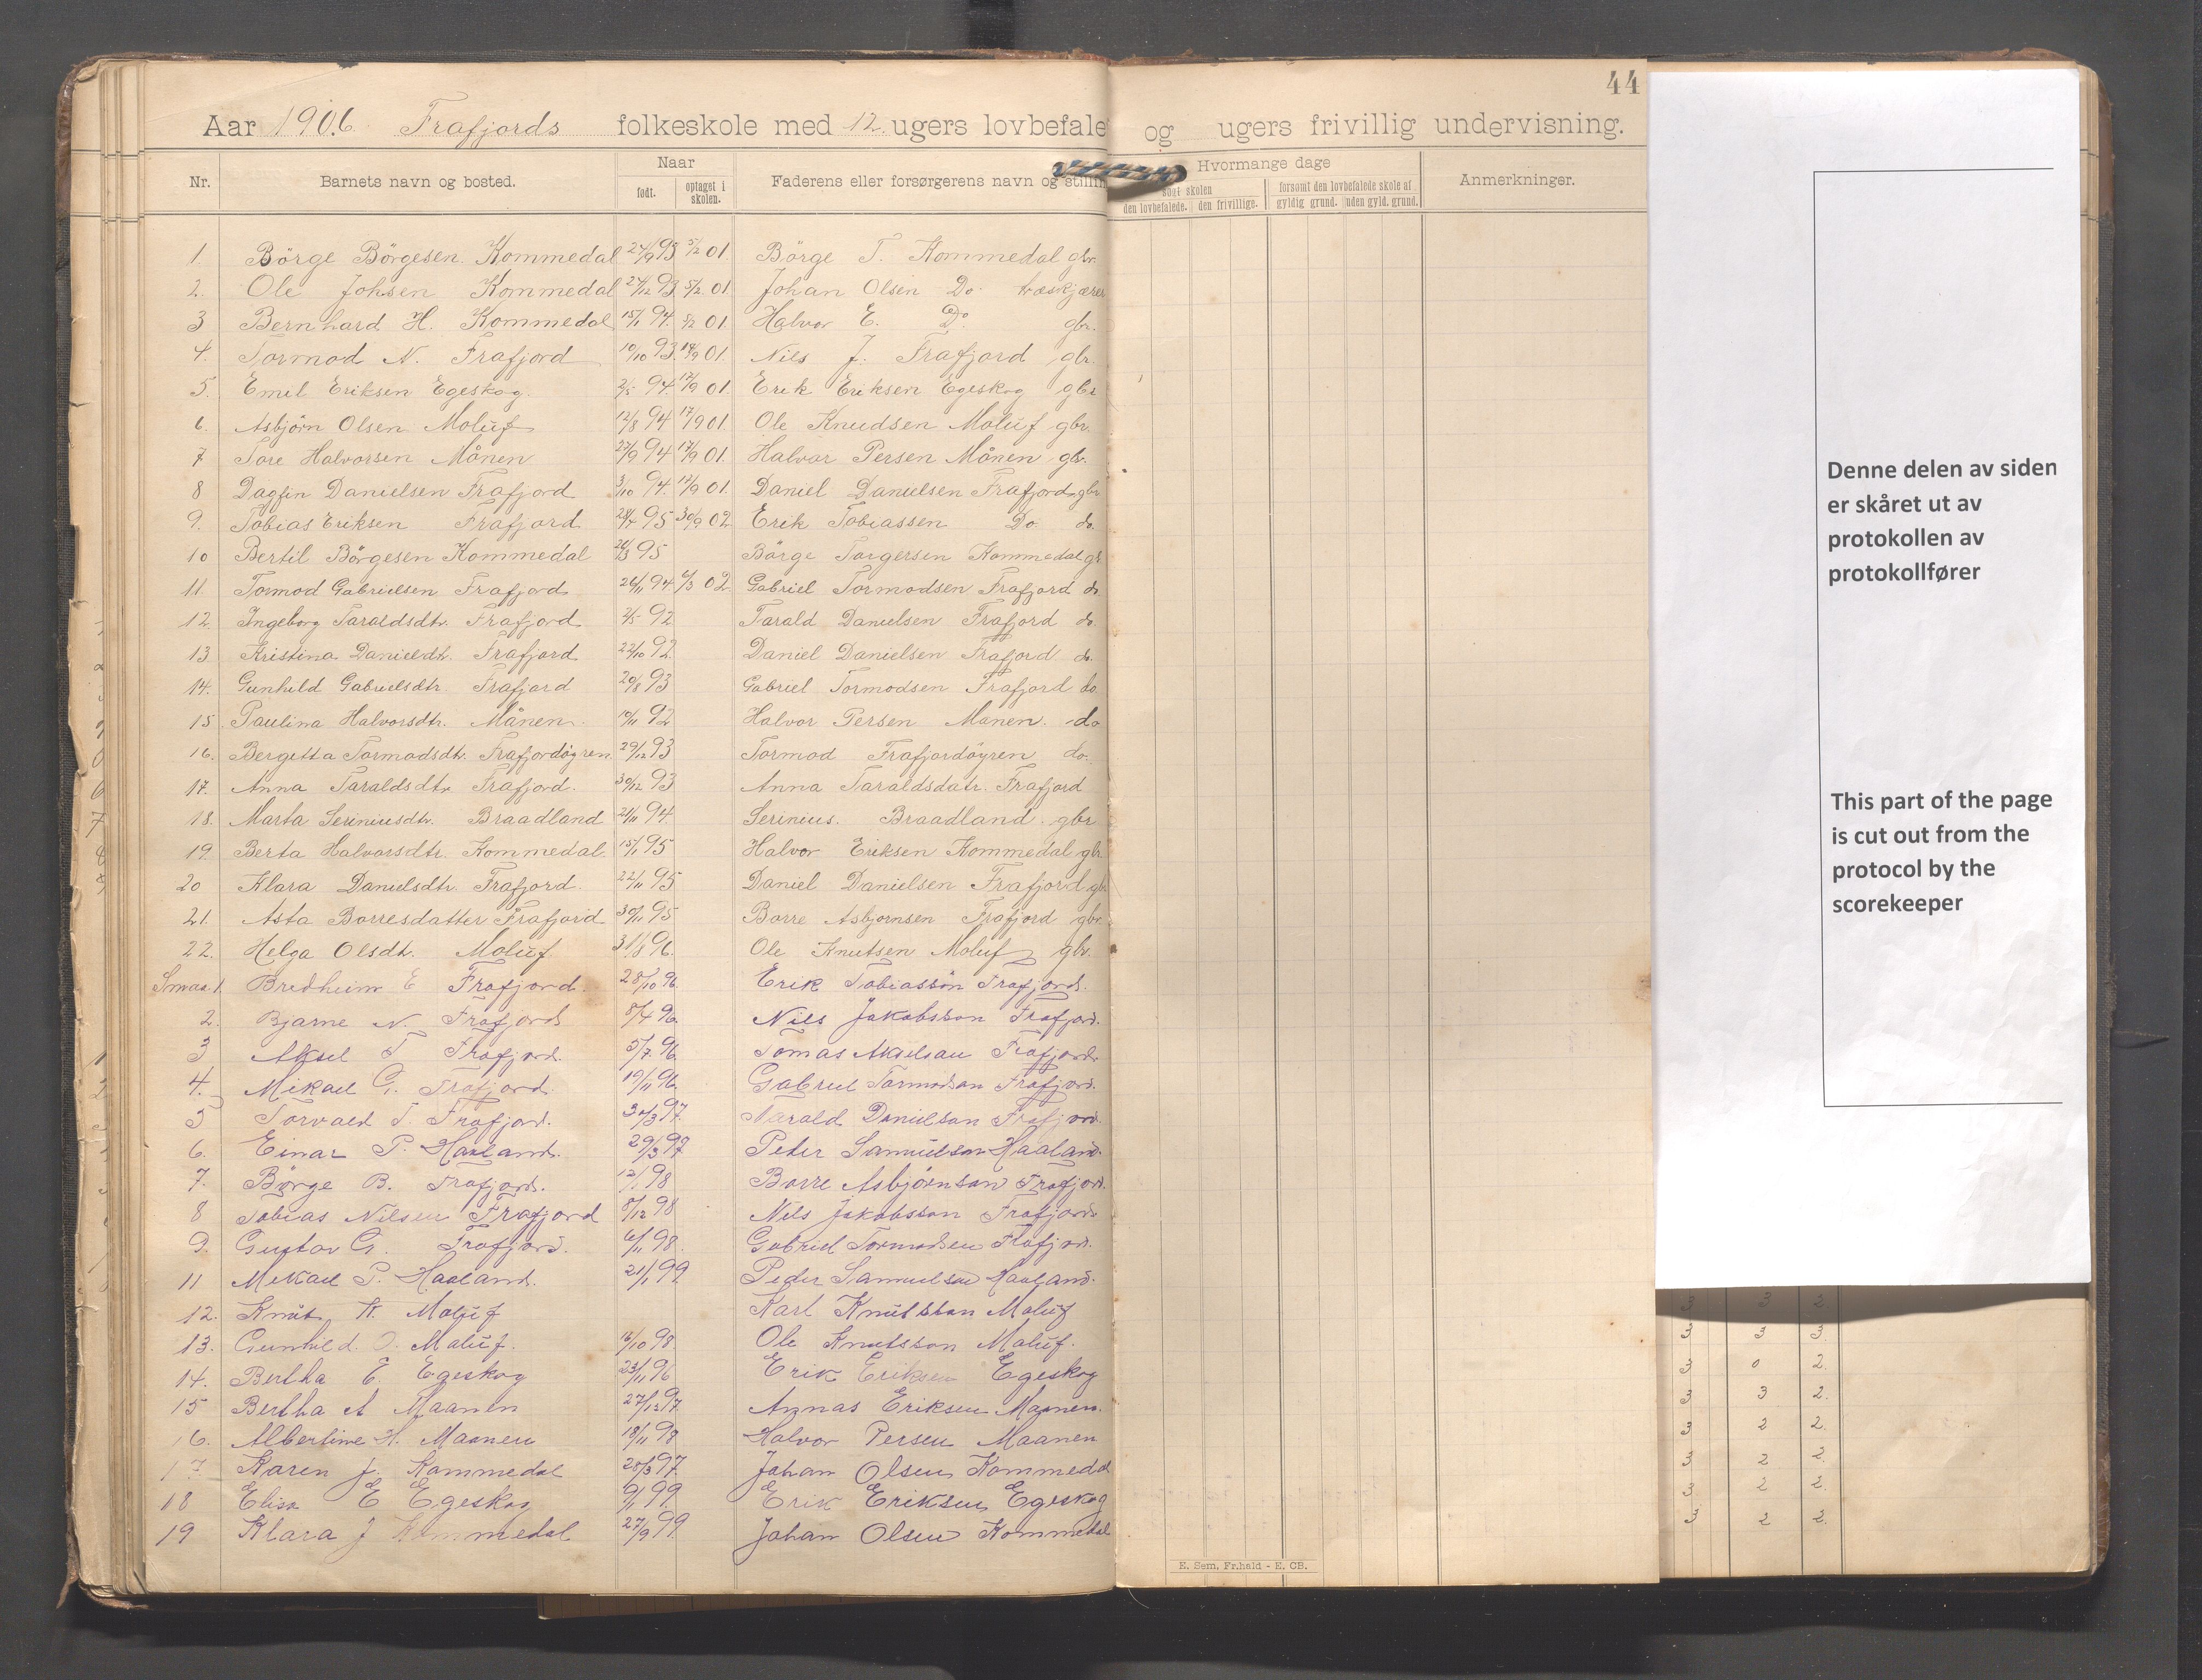 44
Aar 1906 Frafjords folkeskole med 12 ugers lovbefale og ugers frivillig undervisning.
Nr. Barnets navn og bosted. Naar født. optaget i skolen. Faderens eller forsørgerens navn og stillin
Hvormange dage søgt skolen den lovbefalede. den frivillige. forsømt den lovbefalede skole af gyldig grund. uden gyld. grund. Anmerkninger.
1. Börge Börgesen Kommedal 24/9 93 5/2 01. Börge T. Kommedal gbr.
2. Ole Johsen Kommedal 27/12 93 5/2. 01 Johan Olsen Do. træskjærer
3 Bernhard H. Kommedal 15/1 94. 5/2 01 Halvor E. Do gbr.
4. Tormod N. Frafjord 10/10 93. 17/9 01. Nils J. Frafjord gbr.
5. Emil Eriksen Egeskog. 2/5 94. 17/9 01. Erik Eriksen Egeskog gbr
6. Asbjörn Olsen Moluf 12/8 94 17/9 01. Ole Knudsen Moluf gbr.
7 Tore Halvorsen Månen 27/9 94 17/9 01. Halvor Persen Månen gbr.
8 Dagfin Danielsen Frafjord 3/10 94. 17/9 01. Daniel Danielsen Frafjord gbr
9. Tobias Eriksen Frafjord 95 30/9 02 Erik Tobiassen Do do.
10 Bertil Börgesen Kommedal 95 Börge Torgersen Kommedal
11 Tormod Gabrielsen Frafjord 26/11 94. 02. Gabriel Tormodsen Frafjord do
12. Ingeborg Taraldsdtr. Frafjord 2/5 92 Tarald Danielsen Frafjord do.
13 Kristina Danieldtr. Frafjord 22/10 92. Daniel Danielsen Frafjord do.
14. Gunhild Gabrielsdtr. Frafjord 20/8 93 Gabriel Tormodsen Frafjord do
15. Paulina Halvorsdtr. Månen. 10/11 92 Halvor Persen Månen. do
16. Bergitta Tormodsdtr. Frafjordöyren 29/12 93 Tormod Frafjordöyren do.
17. Anna Taraldsdtr Frafjord. 30/12 93 Anna Taraldsdatr. Frafjord
18. Marta Seriniusdtr. Braadland 21/11 94. Serinius. Braadland gbr
19. Berta Halvorsdtr. Kommedal. 15/1 95 Halvor Eriksen Kommedal gbr.
20 Klara Danielsdtr. Frafjord. 22/11 95 Daniel Danielsen Frafjord gbr
21. Asta Borresdatter Frafjord 30/11 95 Borre Asbjornsen Frafjord gbr.
22. Helga Olsdtr. Moluf 96. Ole Knutsen Moluf gbr.
Smaa. 1 Bredheim E Frafjord. 28/10 96. Erik Tobiassön Frafjord.
2. Bjarne N. Frafjord 8/4 96. Nils Jakobsson Frafjord.
3 Aksel T Frafjord. 5/7 96. Tomas Akselsau Frafjord
4. Mikael G. Frafjord. 19/11 96. Gabriel Tormodson Frafjord.
5 Torvald T. Frafjord. 97. Tarald Danielson Frafjord.
6. Einar P. Haaland. 29/3 97 Peder Samuelson Haaland.
7. Børge B. Frafjord. 12/1 98 Borre Asbjørnson Frafjord.
8 Tobias Nilsen Frafjord 8/12 98 Nils Jakobsson Frafjord
9. Gustav G. Frafjord. 6/11 98. Gabriel Tormodsen Frafjord.
11 Mikael P. Haaland. 21/1 99 Peder Samuelson Haaland.
12. Knut K. Moluf Karl Knutsson Moluf
13. Gunhild O. Moluf. 16/10 98. Ole Knutsson Moluf.
14. Bertha E. Egeskog 23/11 96 Erik Eriksen Egeskog
15 Bertha A Maanen 27/12 97. Eriksen Maanen.
16. Albertine H. Maanen 18/11 98 Halvor Persen Maanen
17 Karen J. Kommedal 28/3 97. Johan Olsen Kommedal
18 Elisa E Egeskog 9/1 99. Erik Eriksen Egeskog
19 Klara J Kommedal 27/9 99. Johan Olsen Kommedal
E. Sem, Fr.hald - E. CB.
Denne delen av siden
er skåret ut av
protokollen av
protokollfører
This part of the page
is cut out from the
protocol by the
scorekeeper
3 3 3.
3 0 2.
3 3 2.
3 2 2.
3 2 2.
3 2 2.
3 2 2.